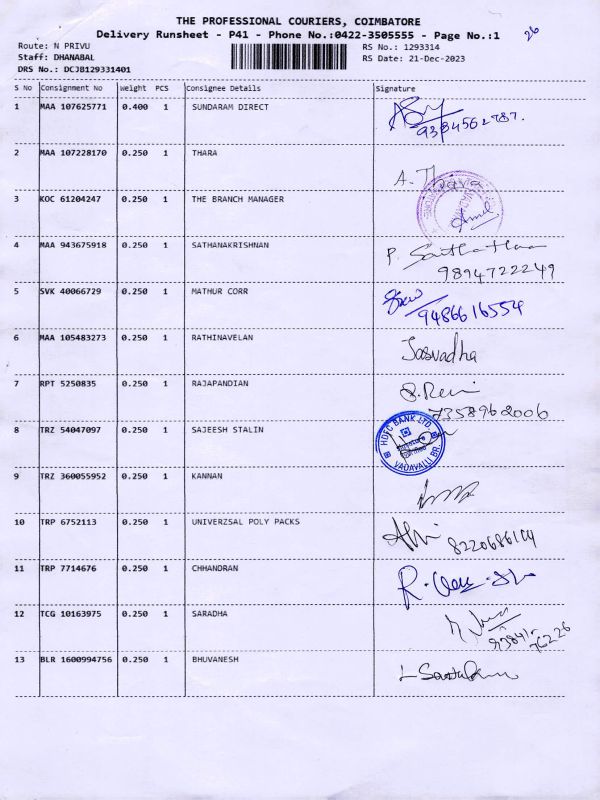 THE PROFESSIONAL COURIERS, COIMBATORE
Delivery Runsheet - P41 - Phone No.:0422-3505555 - Page No.:1
26
Route: N PRIVU
RS No.: 1293314
Staff: DHANABAL
RS Date: 21-Dec-2023
DRS No.: DCJB129331401
S No Consignment No Weight PCS Consignee Details Signature
1 MAA 107625771 0.400 1 SUNDARAM DIRECT
2 MAA 107228170 0.250 1 THARA A. Thara
3 KOC 61204247 0.250 1 THE BRANCH MANAGER
4 MAA 943675918 0.250 1 SATHANAKRISHNAN
9894722249
5 SVK 40066729 0.250 1 MATHUR CORR
9486616554
6 MAA 105483273 0.250 1 RATHINAVELAN Jasvadha
7 RPT 5250835 0.250 1 RAJAPANDIAN
7358962006
8 TRZ 54047097 0.250 1 SAJEESH STALIN HDFC BANK LTD. VADAVALLI BR.
9 TRZ 360055952 0.250 1 KANNAN
10 TRP 6752113 0.250 1 UNIVERZSAL POLY PACKS
11 TRP 7714676 0.250 1 CHHANDRAN
12 TCG 10163975 0.250 1 SARADHA
13 BLR 1600994756 0.250 1 BHUVANESH